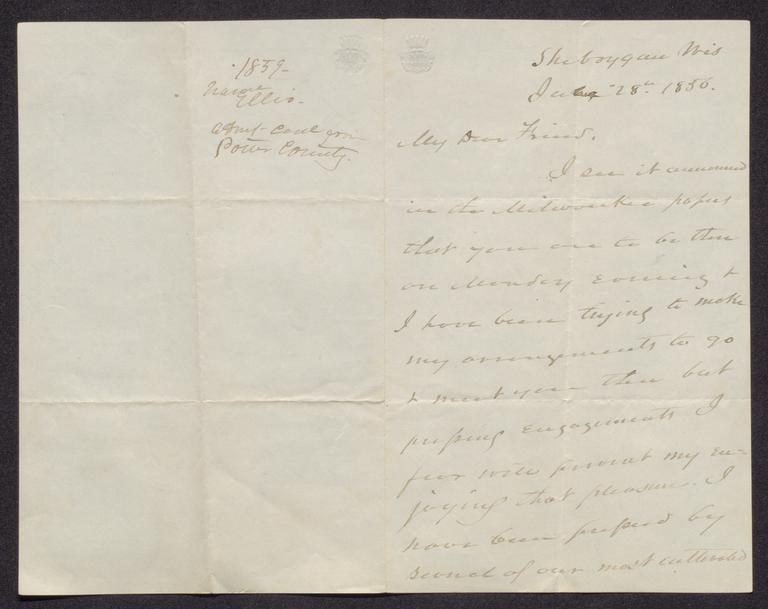 1859-
Ellis.
about coal in
Potter County.
Sheboygan Wis
28th 1856.
My Dear Friend.
I see it announced
in the Milwaukee papers
that you are to be there
on Monday evening &
I have been trying to make
my arrangements to go
& meet you there but
pressing engagements I
fear will prevent my en-
joying that pleasure. I
have been pressed by
several of our most cultivated